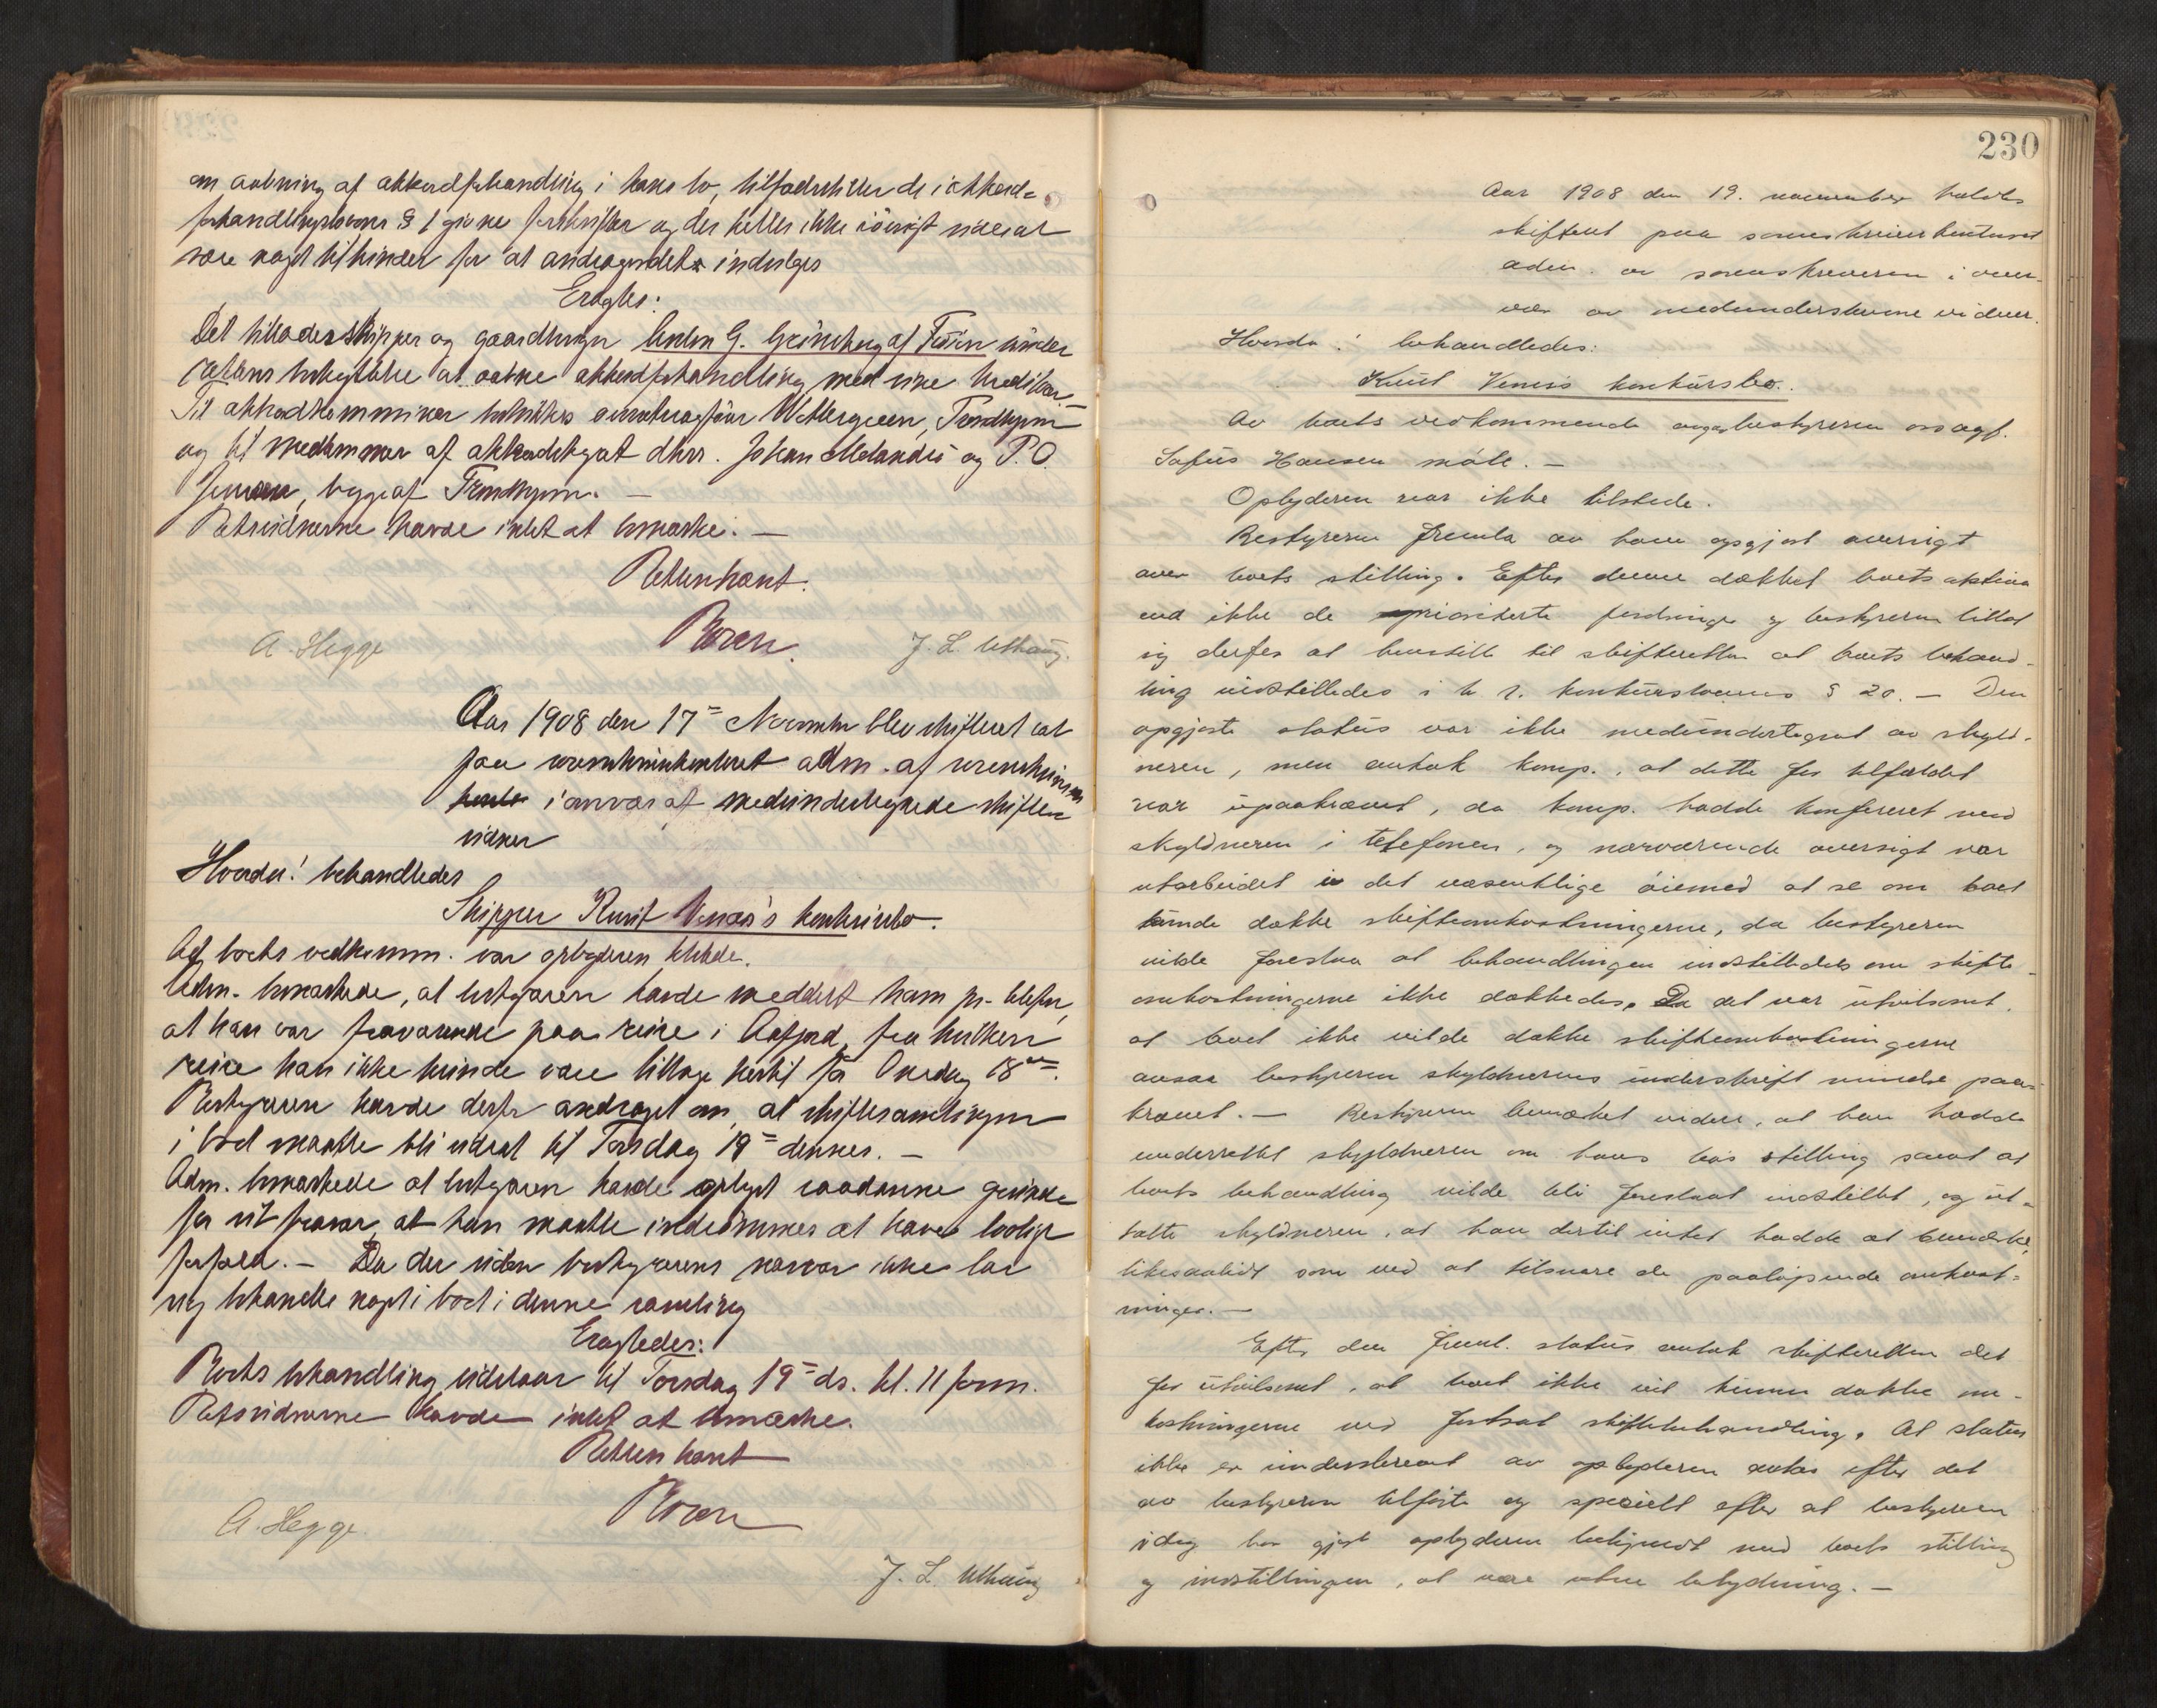 om aabning af akkordforhandling i hans bo, tilfredsstiller de i akkord-
forhandlingslovens § 1 givne forskrifter og der heller ikke iøvrigt sees at
være noget til hinder for at andragendet indvilges
Eragtes:
Det tillades skipper og gaardbruger G. af under
rettens beskyttelse at aabne akkordforhandling med sine kreditorer.
Til akkordkommissær beskikkes overretssagfører Wettergreen, Trondhjem
og til medlemmer af akkordstyret dhrr. Johan Melandsø og P. O.
begge af Trondhjem. —
Retsvidnerne havde intet at bemærke. —
Retten hævet.
A. Hegge J. L. Uthaug.
Aar 1908 den 17de November blev skifteret sat
paa sorenskriverkontoret adm. af sorenskriveren
i overvær af medundertegnede skifte-
vidner
Hvorda! behandledes
Skipper Knut Venæs's konkursbo.
Af boets vedkomm. var opbyderen tilstede.
Adm. bemærkede, at bestyreren havde meddelt ham pr. telefon,
at han var fraværende paa reise i Aafjord, fra hvilken
reise han ikke kunde være tilbage hertil før Onsdag 18de.
Bestyreren havde derfor andraget om, at skiftesamlingen
i boet maatte bli udsat til Torsdag 19de dennes. —
Adm. bemærkede at bestyreren havde oplyst saadanne grunde
for sit fravær, at han maatte indrømmes at have lovligt
forfald. — Da der uden bestyrerens nærvær ikke lar
sig behandle noget i boet i denne samling
Eragtedes:
Boets behandling udstaar til Torsdag 19de ds. kl. 11 form.
Retsvidnerne havde intet at bemærke.
Retten hævet
A. Hegge.
J. L. Uthaug
230
Aar 1908 den 19. november holdtes
skifteret paa sorenskriverkontoret
adm. av sorenskriveren i over-
vær av medunderskrevne vidner.
Hvorda! behandledes:
Knut Venæs konkursbo.
Av boets vedkommende bestyreren o.r.sagf.
Sofus Hansen møtte. —
Opbyderen var ikke tilstede.
Bestyreren fremla en av ham opgjort oversigt
over boets stilling. Efter denne dækket boets aktiva
end ikke de prioriterte fordringer og bestyreren tillot
sig derfor at henstille til skifteretten at boets behand-
ling indstilledes i h. t. konkurslovens § 20. — Den
opgjorte status var ikke medundertegnet av skyld-
neren, men antok komp., at dette for tilfældet
var upaakrævet, da komp. hadde konfereret med
skyldneren i telefonen, og nærværende oversigt var
utarbeidet i det væsentlige øiemed at se om boet
kunde dække skifteomkostningerne, da bestyreren
vilde foreslaa at behandlingen indstilledes om skifte-
omkostningerne ikke dækkedes. Da det var utvilsomt,
at boet ikke vilde dække skifteomkostningerne
ansaa bestyreren skyldnerens underskrift mindre paa-
krævet. — Bestyreren bemærket videre, at han hadde
underrettet skyldneren om hans bos stilling samt at
boets behandling vilde bli foreslaat indstillet, og ut-
talte skyldneren, at han dertil intet hadde at bemærke,
likesaalidt som ved at tilsvare de paaløpende omkost-
ninger. —
Efter den freml. status antok skifteretten det
for utvilsomt, at boet ikke vil kunne dække om-
kostningerne ved fortsat skiftebehandling. At status
ikke er underskrevet av opbyderen antas efter det
av bestyreren tilførte og specielt efter at bestyreren
idag har gjort opbyderen bekjendt med boets stilling
og indstillingen, at være uten betydning. —